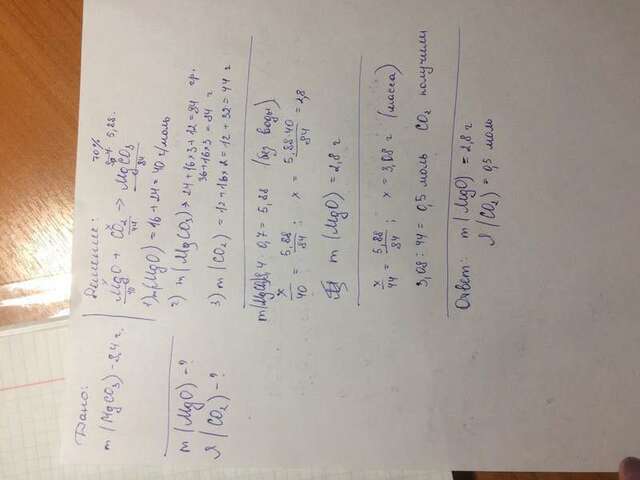 Дано:
m(MgCO₃) - 8,4 г.
m(MgO) - ?
Я(CO₂) - ?
Решение:
70%
5,88.
MgO + CO₂ => MgCO₃
40 44 84
1) m(MgO) = 16 + 24 = 40 г/моль
2) m(MgCO₃) => 24 + 16 × 3 + 12 = 84 гр.
36 + 16 × 3 = 84 г
3) m(CO₂) = 12 + 16 × 2 = 12 + 32 = 44 г
m(MgCO₃) 8,4 · 0,7 = 5,88 (без воды)
x/40 = 5,88/84 ; x = 5,88 40/84 = 2,8
m(MgO) = 2,8 г
x/44 = 5,88/84 ; x = 3,08 г (масса)
3,08 ÷ 44 = 0,5 моль CO₂ получили
Ответ: m(MgO) = 2,8 г
Я(CO₂) = 0,5 моль